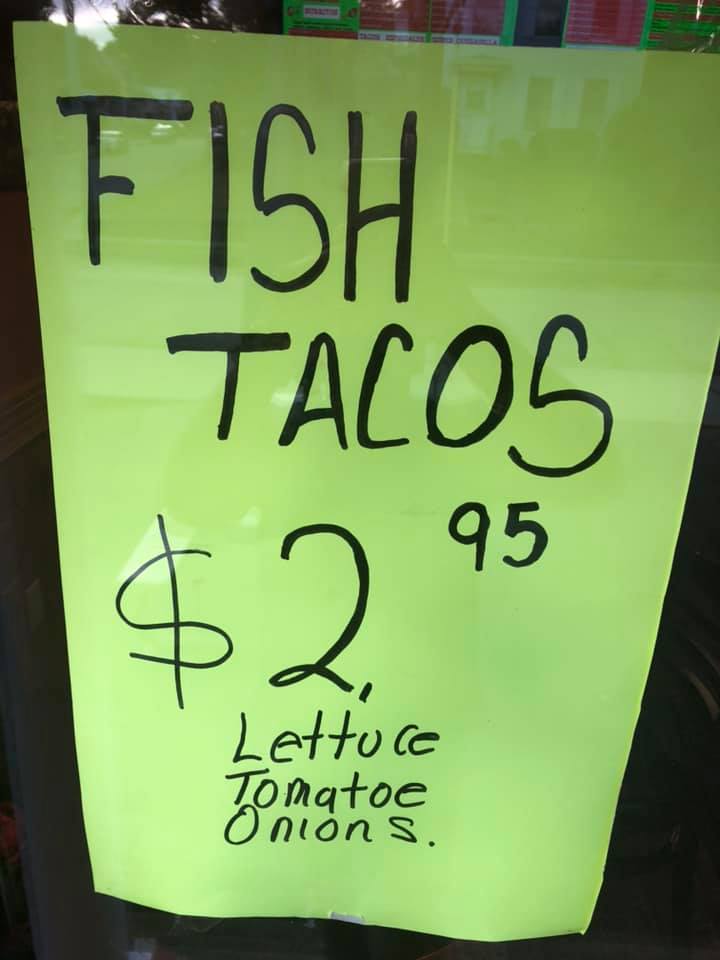 FISH
TACOS
$2. 95
Lettuce
Tomatoe
Onions.